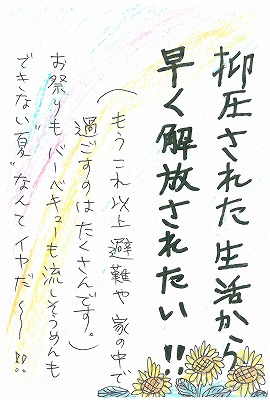 抑圧された生活から
早く解放されたい!!
(もうこれ以上避難や家の中で
過ごすのはたくさんです。)
お祭りもバーベキューも流しそうめんも
できない“夏”なんてイヤだ〜〜!!